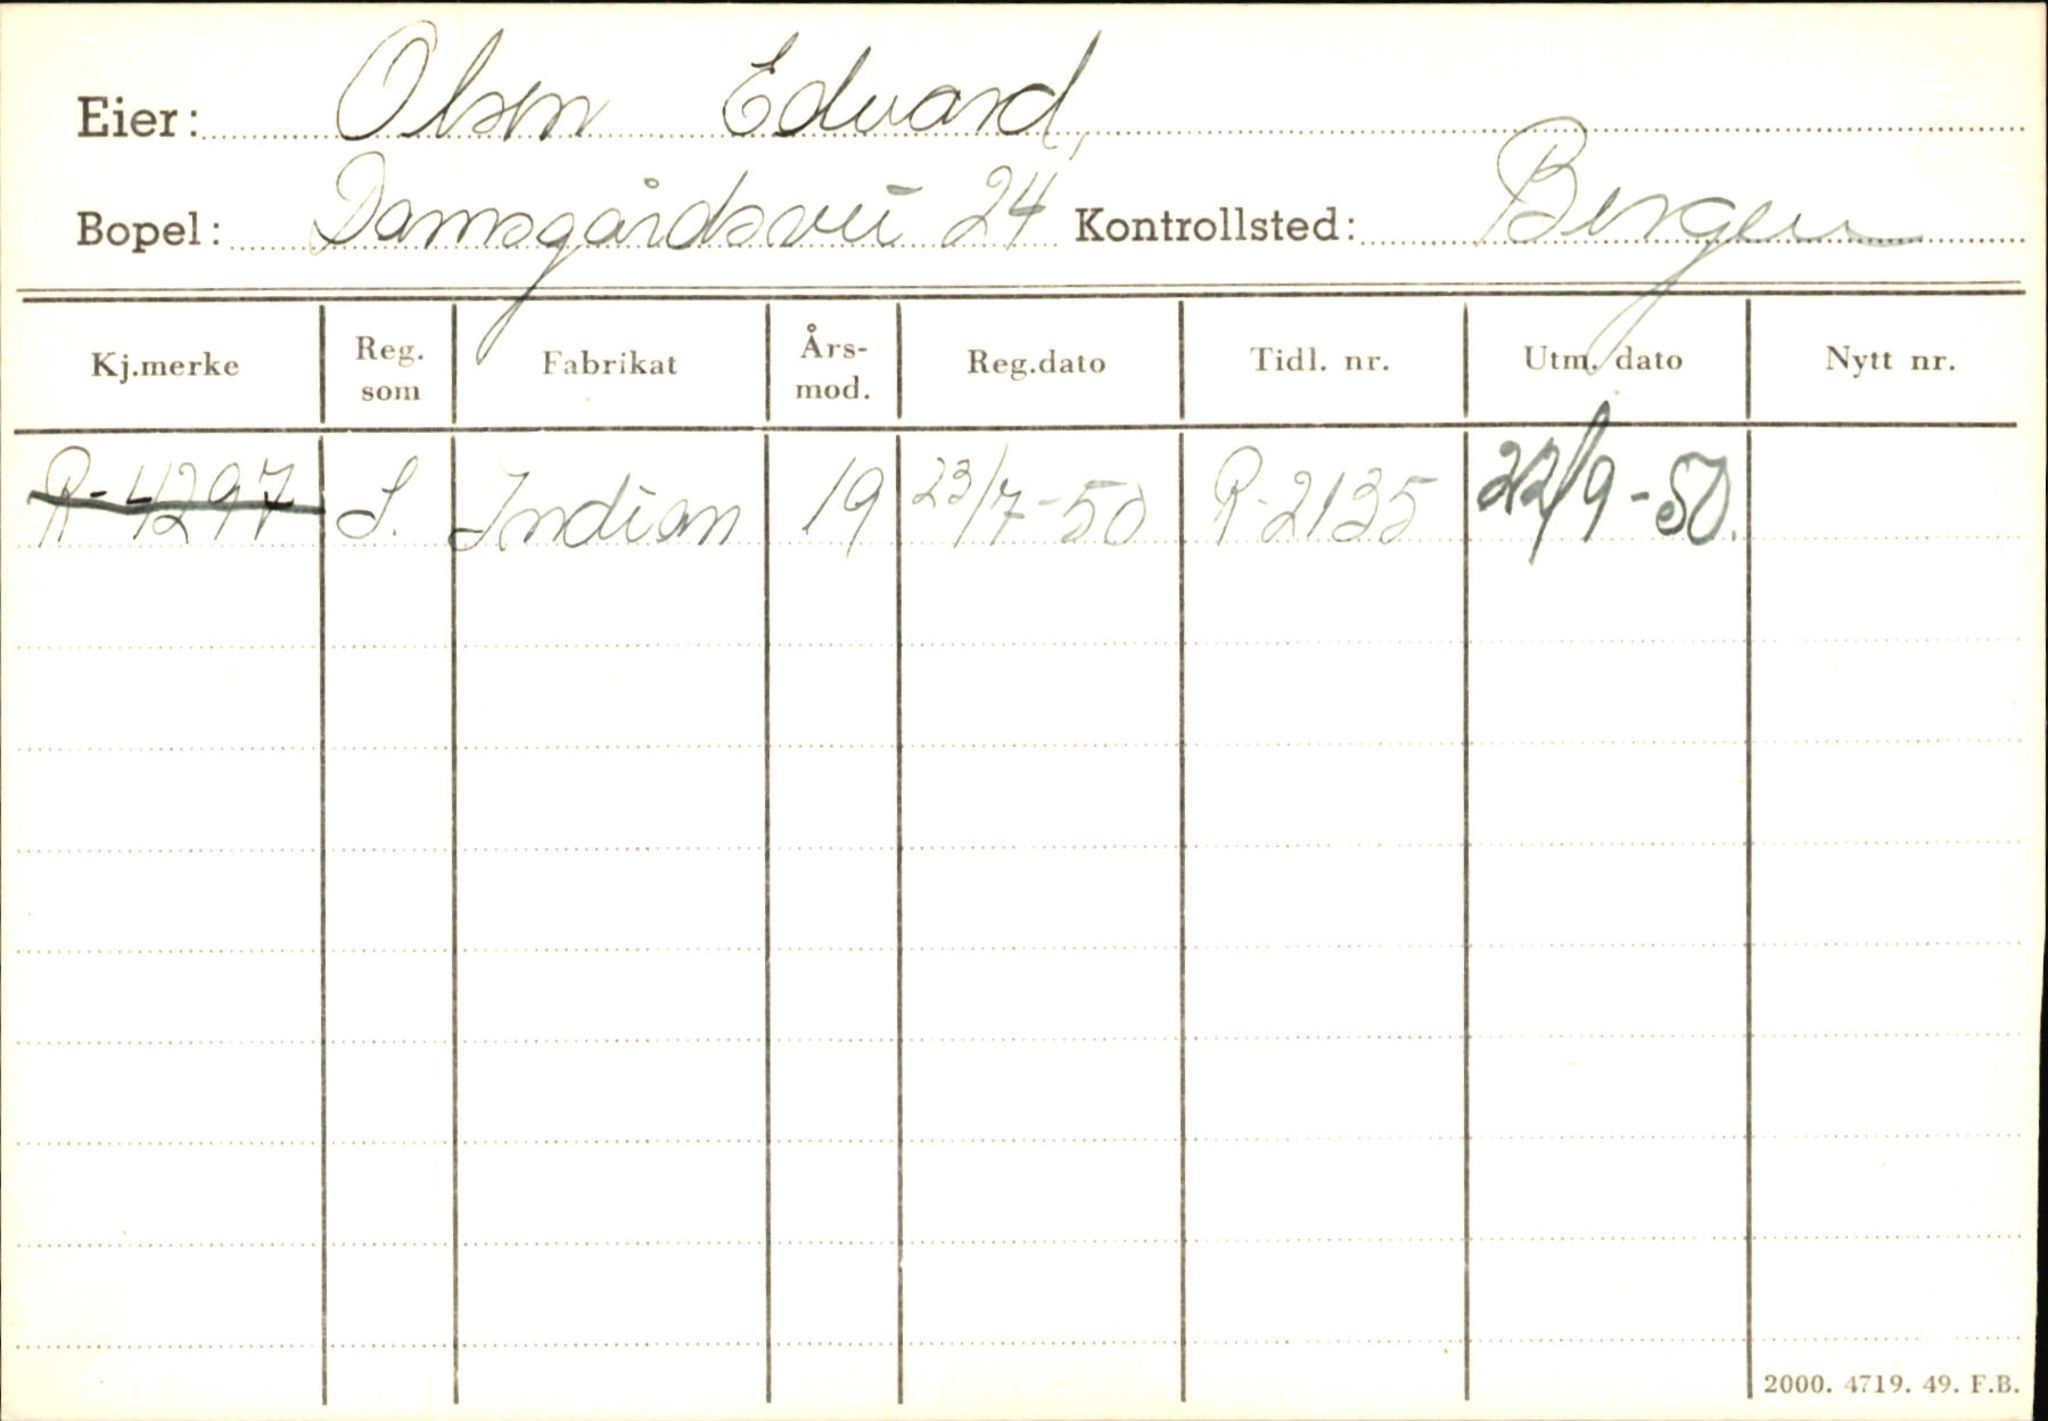 Eier: Olsen Edvard,
Bopel: Damsgårdsvei 24 Kontrollsted: Bergen
Kj.merke Reg. som Fabrikat Års-mod. Reg.dato Tidl. nr. Utm. dato Nytt nr.
R-4297 S. Indian 19 23/7-50 R-2135 22/9-50.
2000. 4719. 49. F.B.